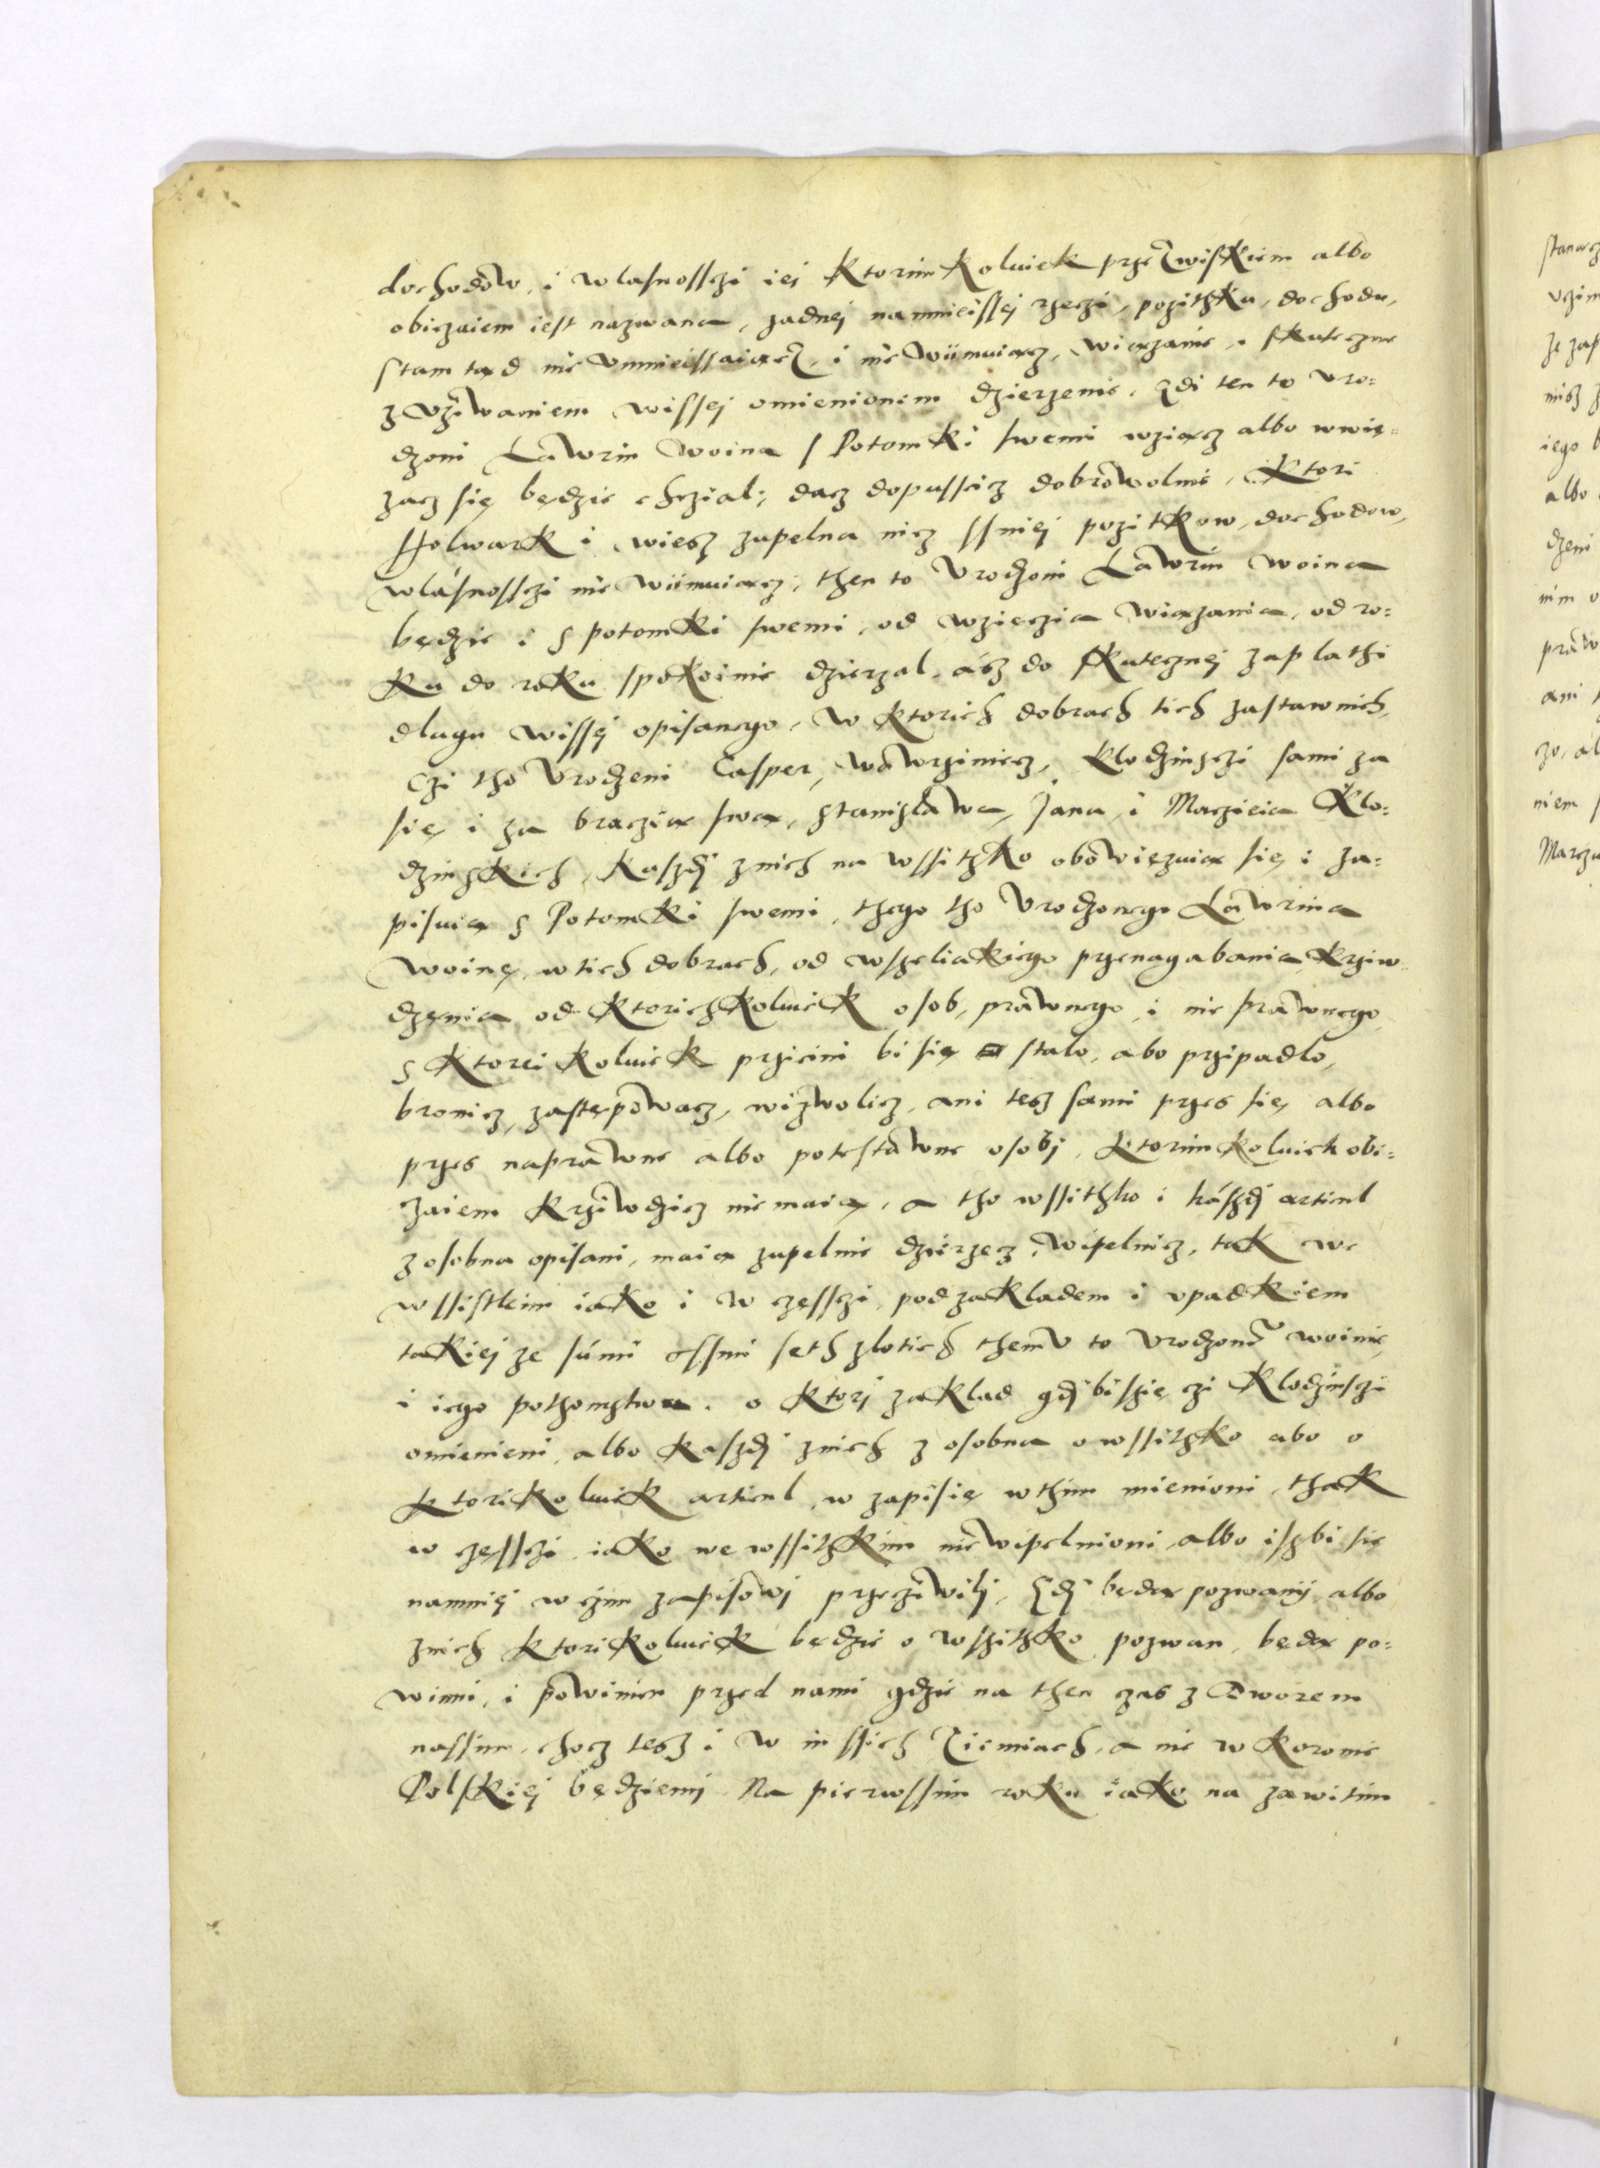 dochodow, i wlasnossczi iei Ktorim Kolwiek przezwiskiem albo
obiczaiem iest nazwana, zadnej namnieissej rzeczi, pozithku, dochodu,
stam tąd nie vmnieissaiącz, i nie wiimuiącz, wiązanie, i skuteczne
z vziwaniem wissej omienionem dzierzenie, gdi ten to vro:
dzoni Lawrin Woina s Potomki swemi wziącz albo wwię:
zacz się będzie chczial; dacz dopuscicz dobrowolnie, Ktori
Holwark i wiesz zupelna nicz ssniej pozitkow, dochodow,
wlasnossczi nie wiimuiącz, then to Vrodzoni Lawrin Woina
będzie i s potomki swemi, od wzieczia wiązania, od ro:
Ku do roku spokoinie dzierzal, ász do skutecznej zaplathi
dlugu wissej opisanego, w ktorich dobrach tich zastawnich,
Czi tho Vrodzeni Casper, Wawrziniecz, Klodzinsczi sami za
się i za braczią swą, Stanislawa, Jana, i Maczieia Klo:
dzinskich, Kaszdj znich na wssithko obowięzuią się i za:
pisuią s Potomki swemi, thego tho Vrodzonego Lawrina
Woinę, wtich dobrach, od wszeliakiego przenagabania, krziw:
dzenia od Ktorichkolwiek osob, prawnego, i nie prawnego,
s Ktorei kolwiek prziczini bi się stalo, abo przipadlo,
bronicz, zastępowacz, wizwolicz, ani tesz sami przes się, albo
przes naprawne albo potestawne osobj, ktorimkolwiek obi:
czaiem Krziwdzicz nie maią, a tho wssithko i kászdj articul
z osobna opisani, maią zupelnie dzierzecz, wipelnicz, tak we
wssistkim iako i w częssczi, pod zakladem i vpadkiem
takiej ze súmi ossmi seth zlotich themv to Vrodzonv Woinie,
i iego pothomstwu. o Ktorj zaklad gdj bi szię czi Klodzinsczi
omienieni, albo Kaszdj znich z osobna o wssithko abo o
Ktorikolwiek articul, w zapisię wthim mienioni, thak
w częssczi, iako we wssithkim nie wipelnioni, albo iszbi sie
namniej w czim zapisowj przecziwilj, Gdj będą pozwanij albo
znich Ktorikolwiek będzie o wszithko pozwan, będą po:
winni, i powinien przed nami gdzie na then czas z Dworem
nassim, chocz tesz i w inssich Ziemiach, a nie w Koronie
Polskiej będziemj Na pierwssim roku iako na zawitim